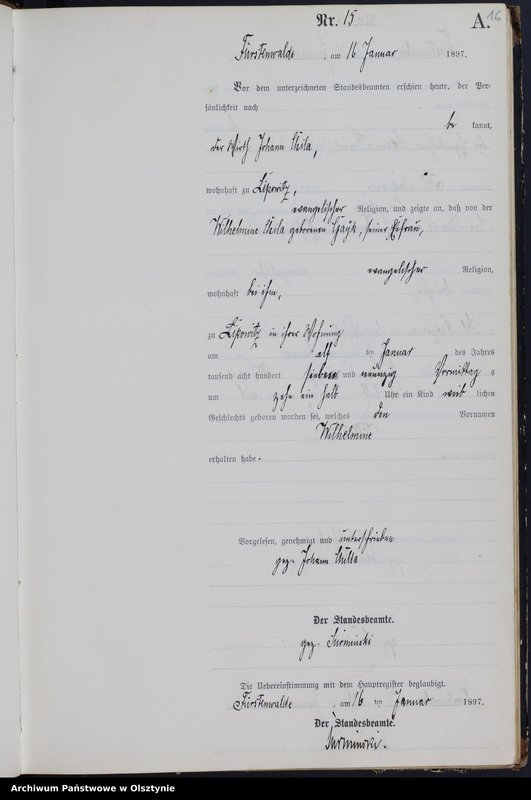 16
Nr. 15 A.
Fürstenwalde, am 16 Januar 1897.
Vor dem unterzeichneten Standesbeamten erschien heute, der Per-
sönlichkeit nach
be kannt,
der Wirth Johann
wohnhaft zu Lipowitz,
evangelischer Religion, und zeigte an, daß von der
Wilhelmine geborenen seiner Ehefrau,
evangelischer Religion,
wohnhaft bei ihm,
zu Lipowitz in ihrer Wohnung
am elf ten Januar des Jahres
tausend acht hundert sieben und neunzig Vormittag s
um zehn ein halb Uhr ein Kind weib lichen
Geschlechts geboren worden sei, welches den Vornamen
Wilhelmine
erhalten habe.
Vorgelesen, genehmigt und unterschrieben
gez. Johann
Der Standesbeamte.
gez. Surminski
Die Uebereinstimmung mit dem Hauptregister beglaubigt.
Fürstenwalde, am 16 ten Januar 1897.
Der Standesbeamte.
Surminski.
Archiwum Państwowe w Olsztynie